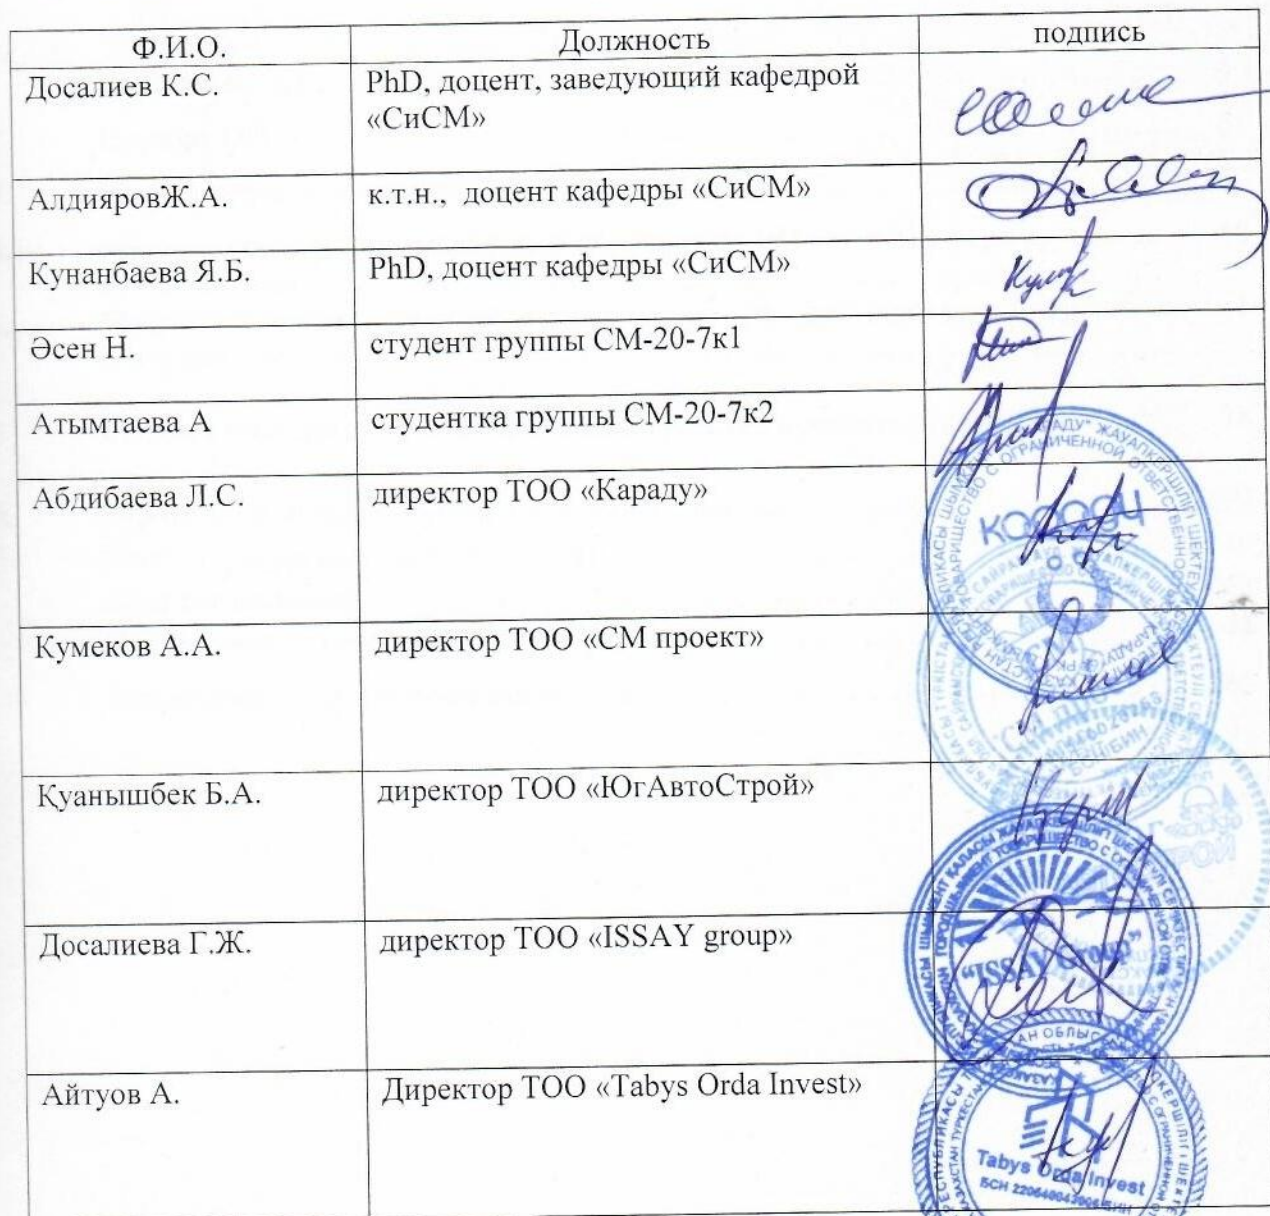 Ф.И.О. Должность подпись
Досалиев К.С. PhD, доцент, заведующий кафедрой
«СиСМ»
АлдияровЖ.А. к.т.н., доцент кафедры «СиСМ»
Кунанбаева Я.Б. PhD, доцент кафедры «СиСМ»
Әсен Н. студент группы СМ-20-7к1
Атымтаева А студентка группы СМ-20-7к2
Абдибаева Л.С. директор ТОО «Караду»
Кумеков А.А. директор ТОО «СМ проект»
Қуанышбек Б.А. директор ТОО «ЮгАвтоСтрой»
Досалиева Г.Ж. директор ТОО «ISSAY group»
"ISSAY Group"
Айтуов А. Директор ТОО «Tabys Orda Invest»
Tabys Orda Invest